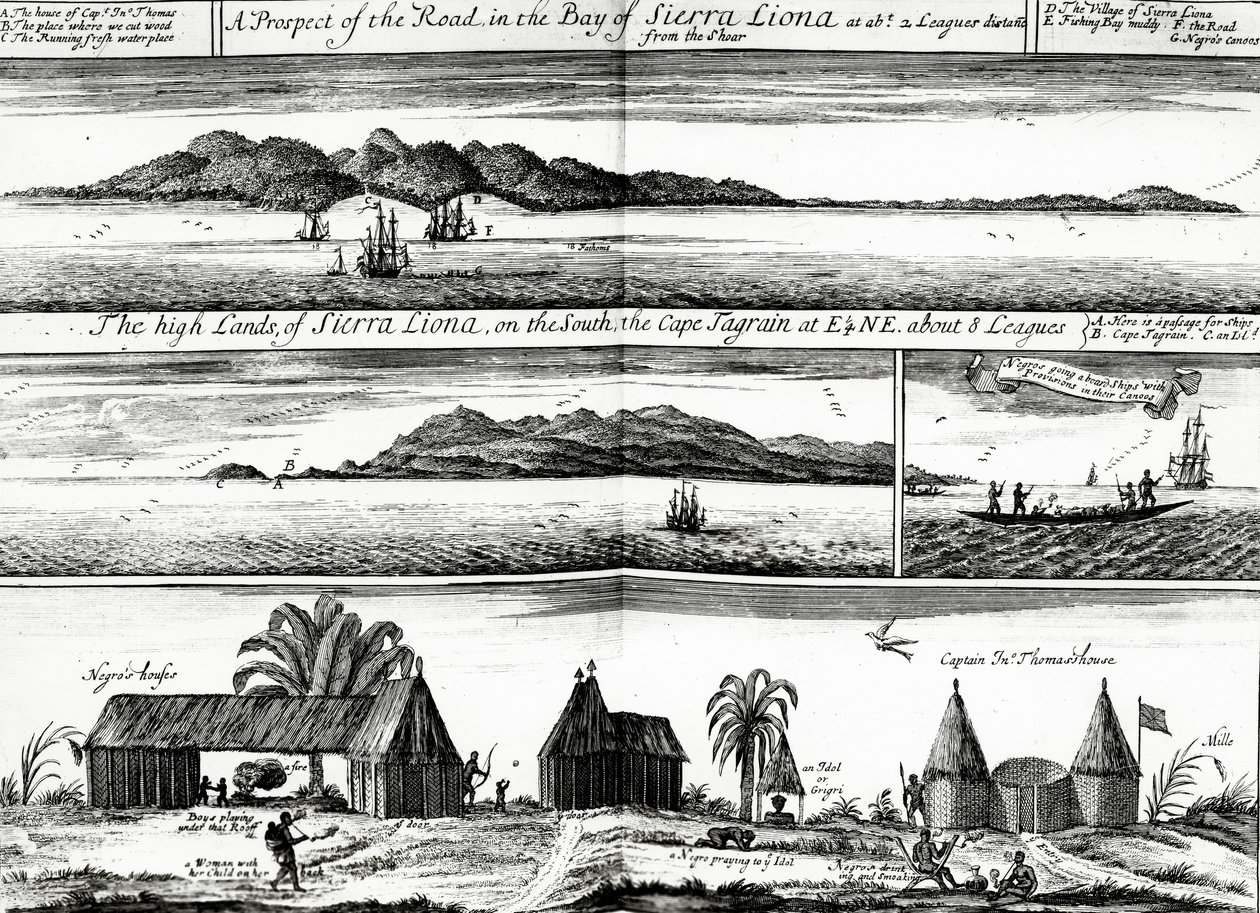 A The house of Cap.t In.o Thomas
B The place where we cut wood
C The Running fresh water place
A Prospect of the Road, in the Bay of Sierra Liona at ab.t 2 Leagues distanc
from the Shoar
D The Village of Sierra Liona
E Fishing Bay muddy. F. the Road
G. Negro's Canoos
C
D
F
18
18
18 Fathoms
G
The high Lands, of Sierra Liona, on the South, the Cape Tagrain at E ¼ NE. about 8 Leagues
A. Here is a passage for Ships
B. Cape Tagrain. C. an Isl.d
Negros going aboard Ships with
Provisions in their Canoos
B
C
A
Negro's houses
Captain In.o Thomas's house
Mille
a fire
an Idol
or
Grigri
Boys playing
under that Rooff
y door
y door
a Woman with
her Child on her back
a Negro praying to y Idol
Negros drink
ing and smoaking